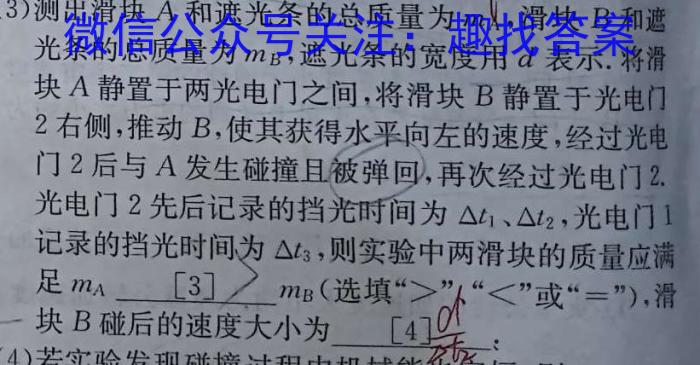 3)测出滑块 A 和遮光条的总质量为 m_A,滑块 B 和遮
微信公众号关注：趣找答案
光条的总质量为 m_B,遮光条的宽度用 d 表示.将滑
块 A 静置于两光电门之间,将滑块 B 静置于光电门
2 右侧,推动 B,使其获得水平向左的速度,经过光电
门 2 后与 A 发生碰撞且被弹回,再次经过光电门 2.
光电门 2 先后记录的挡光时间为 Δt₁、Δt₂,光电门 1
记录的挡光时间为 Δt₃,则实验中两滑块的质量应满
足 m_A [3] m_B(选填“>”“<”或“=”),滑
块 B 碰后的速度大小为 [4] d/Δt₂ ;
(4)若实验发现碰撞过程中机械能